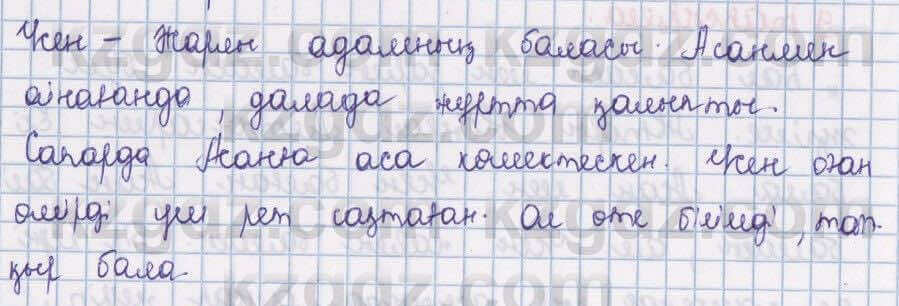 Үсен – Жәрен адамның баласы. Асанмен
ойнағанда, далада жұртта қалыпты.
Сапарда Асанға аса көмектескен. Үсен оған
өмірді үш рет сақтаған. Ол өте білімді, тап-
қыр бала
kzgdz.com